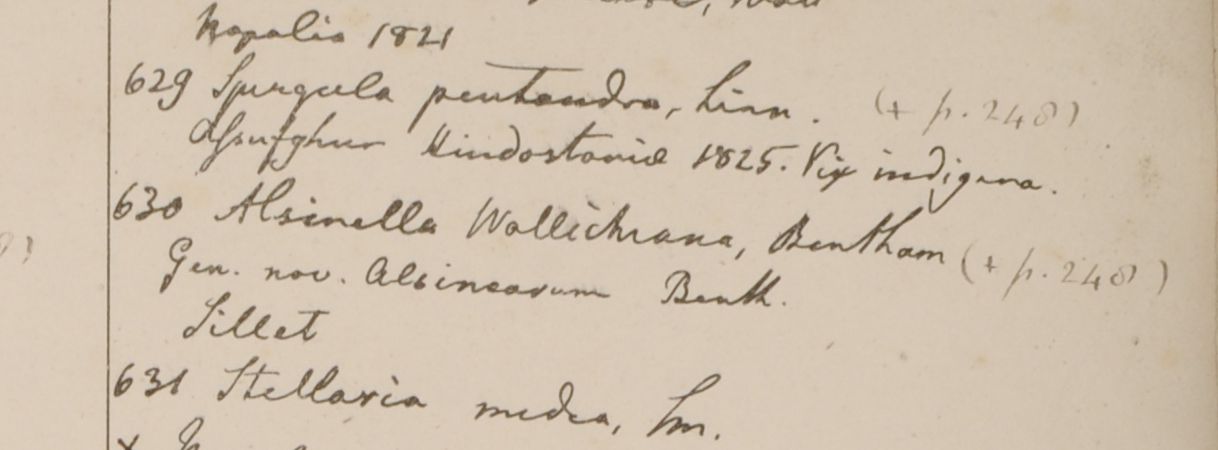 Napalia 1821
629 Spergula pentandra, Linn. (+ p. 248)
Hindostaniæ 1825. Vix indigena.
630 Alsinella Wallichiana, Bentham (+ p. 248)
Gen. nov. Alsinearum Benth.
Sillet
631 Stellaria media, Sm.